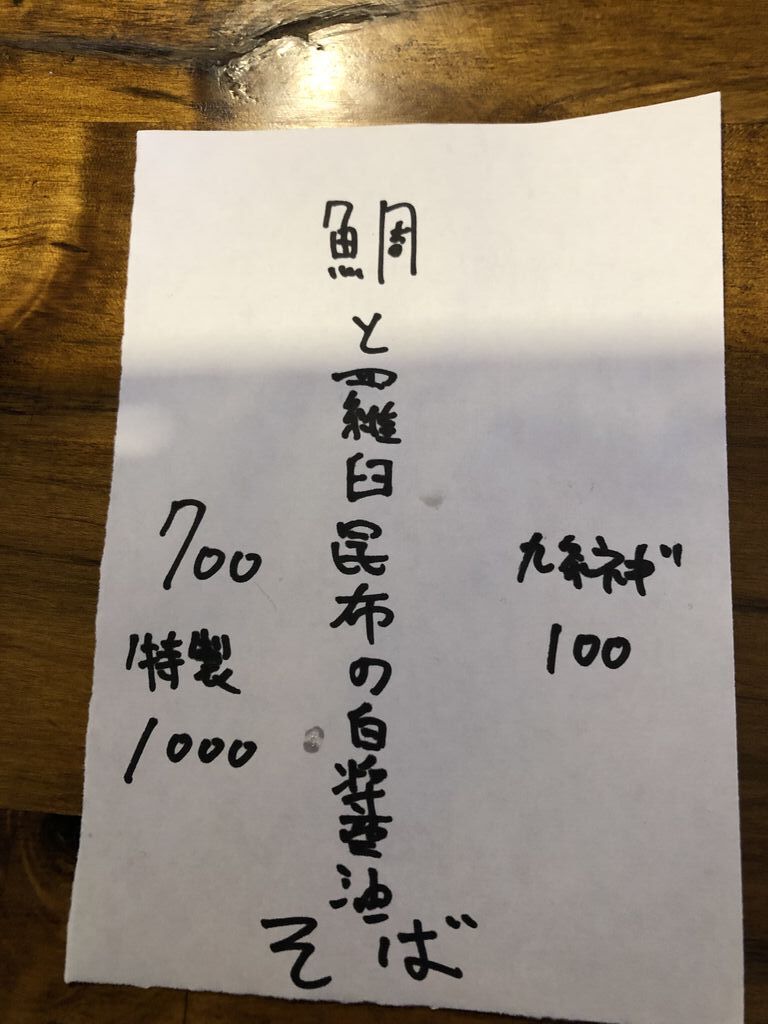 鯛と羅臼昆布の白醤油
そば
700
特製
1000
九条ネギ
100